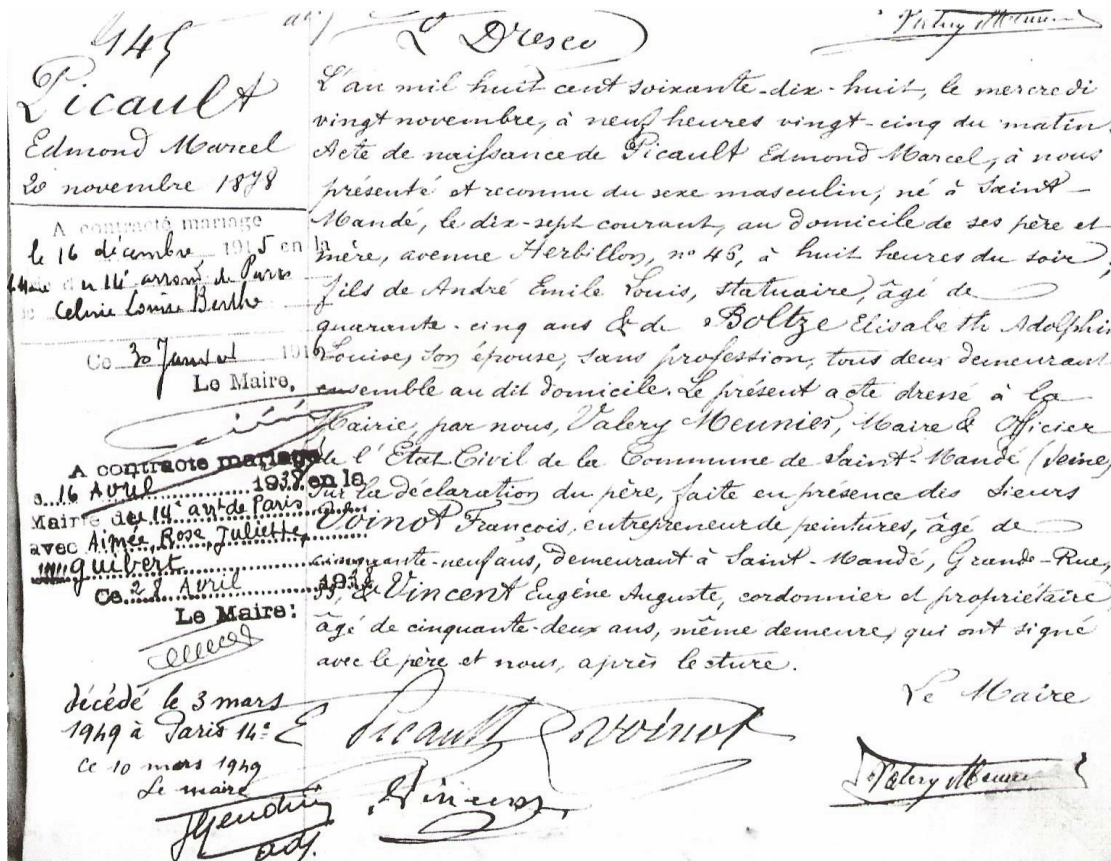 L Dresco
Valery Meunier
145
Picault
Edmond Marcel
20 novembre 1878
A contracté mariage
le 16 décembre 1915 en la
Mairie du 14e arront de Paris
Celine Louise Berthe
Ce 30 Janvier 191
Le Maire,
A contracté mariage
le 16 Avril 1938 en la
Mairie du 14e arrt de Paris
avec Aimée, Rose, Juliette,
Guibert
Ce 28 Avril 1938
Le Maire:
décédé le 3 mars
1949 à Paris 14e
Ce 10 mars 1949
Le maire
adj.
L'an mil huit cent soixante-dix-huit, le mercredi
vingt novembre, à neuf heures vingt-cinq du matin.
Acte de naissance de Picault Edmond Marcel, à nous
présenté et reconnu du sexe masculin, né à Saint-
Mandé, le dix-sept courant, au domicile de ses père et
mère, avenue Herbillon, no 45, à huit heures du soir,
fils de André Emile Louis, statuaire, âgé de
quarante-cinq ans & de Boltze Elisabeth Adolphin
Louise, son épouse, sans profession, tous deux demeurant
ensemble au dit domicile. Le présent acte dressé à la
Mairie, par nous, Valery Meunier, Maire & Officier
de l'État Civil de la Commune de Saint-Mandé (Seine)
Sur la déclaration du père, faite en présence des Sieurs
Voinot François, entrepreneur de peintures, âgé de
cinquante-neuf ans, demeurant à Saint-Mandé, Grande-Rue,
33, & Vincent Eugène Auguste, cordonnier et propriétaire,
âgé de cinquante-deux ans, même demeure, qui ont signé
avec le père et nous, après lecture.
Le Maire
E Picault Voinot
Vincent
Valery Meunier